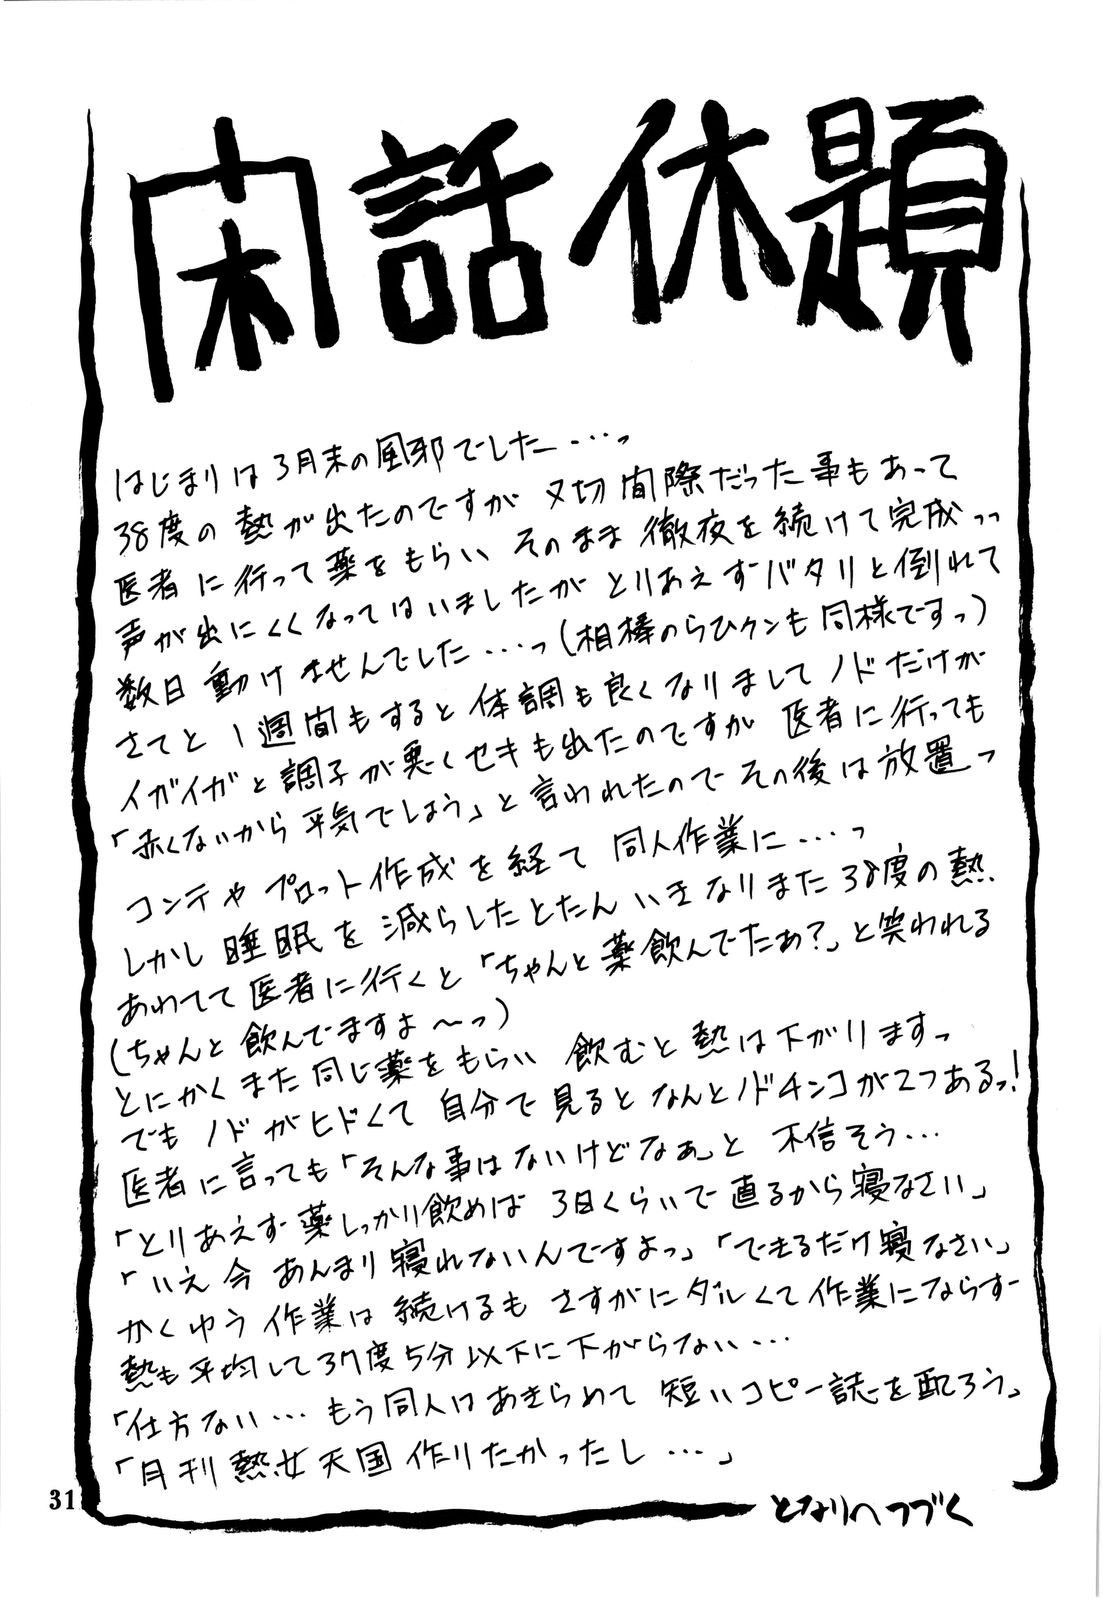 閑話休題
はじまりは3月末の風邪でした…っ
38度の熱が出たのですが〆切間際だった事もあって
医者に行って薬をもらい そのまま徹夜を続けて完成っっ
声が出にくくなってはいましたが とりあえずバタリと倒れて
数日動けませんでした…っ(相棒のらひクンも同様ですっ)
さてと 1週間もすると体調も良くなりまして ノドだけが
イガイガと調子が悪くセキも出たのですが 医者に行っても
「赤くないから平気でしょう」と言われたので その後は放置っ
コンテや プロット作成を経て 同人作業に…っ
しかし睡眠を減らしたとたん いきなりまた38度の熱
あわてて医者に行くと「ちゃんと薬飲んでたぁ?」と笑われる
(ちゃんと飲んでますよ〜っ)
とにかくまた同じ薬をもらい 飲むと熱は下がりますっ
でも ノドがヒドくて 自分で見ると なんとノドチンコが2つあるっ!
医者に言っても「そんな事はないけどなぁ」と 不信そう…
「とりあえず薬しっかり飲めば 3日くらいで直るから寝なさい」
「いえ 今 あんまり寝れないんですよっ」「できるだけ寝なさい」
かくゆう作業は続けるも さすがにダルくて作業にならず
熱も平均して37度5分以下に下がらない…
「仕方ない…もう同人はあきらめて 短いコピー誌を配ろう」
「月刊熱女天国 作りたかったし…」
となりへつづく
31